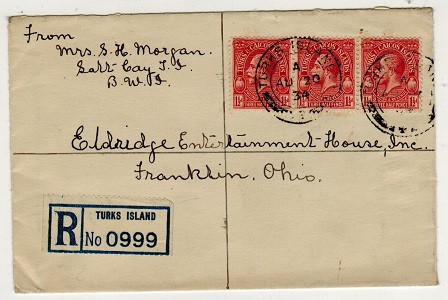 From
Mrs. S. H. Morgan.
Salt Cay T. I.
B. W. I.
TURKS & CAICOS ISLANDS
1½d THREE HALF PENCE 1½d
TURKS ISLAND
A
AU 20
34
Eldridge Entertainment House, Inc.
Franklin, Ohio.
TURKS ISLAND
R No 0999